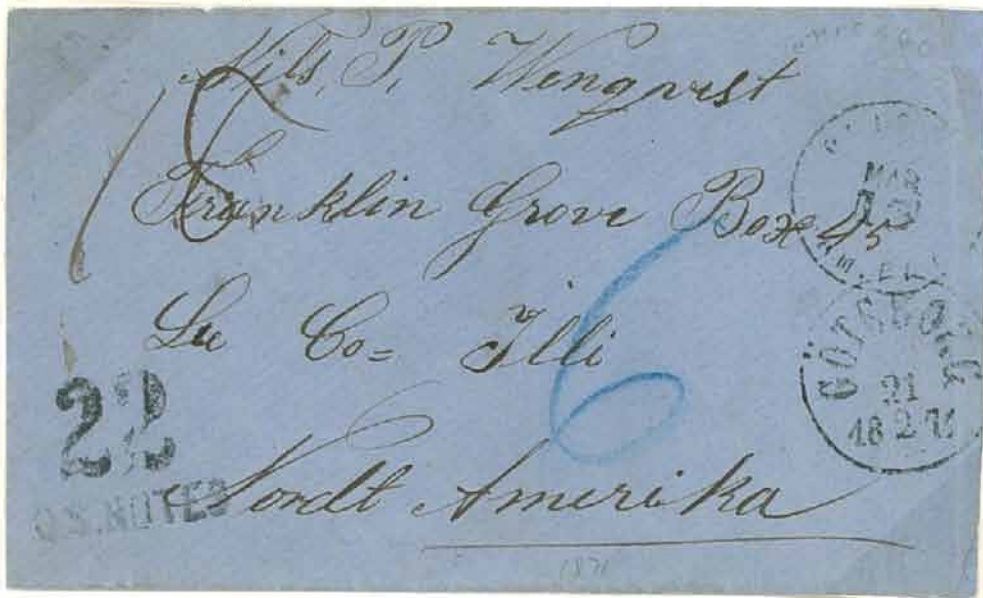 Nils. P. Wenqvist
Franklin Grove Box 45
Lee Co= Illi
Nordt Amerika
6
22
U.S. NOTES
MAR
GÖTEBORG
21
18 2 71
1871